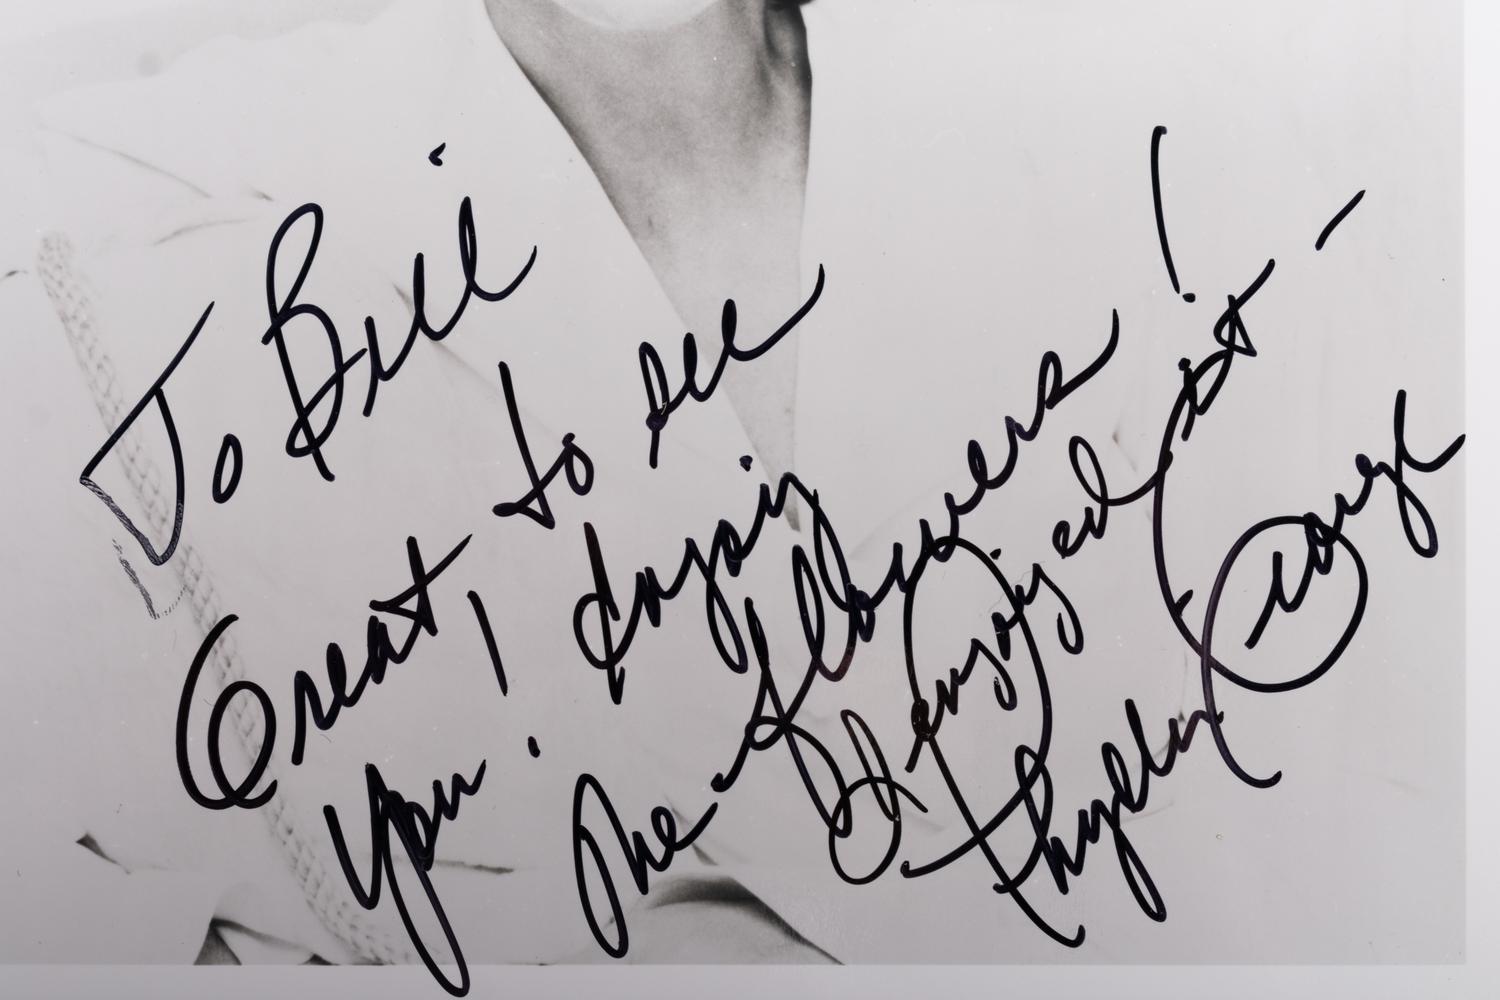 To Bill
Great to see
You! Enjoy
The flowers!
I enjoyed it -
Phyllis George